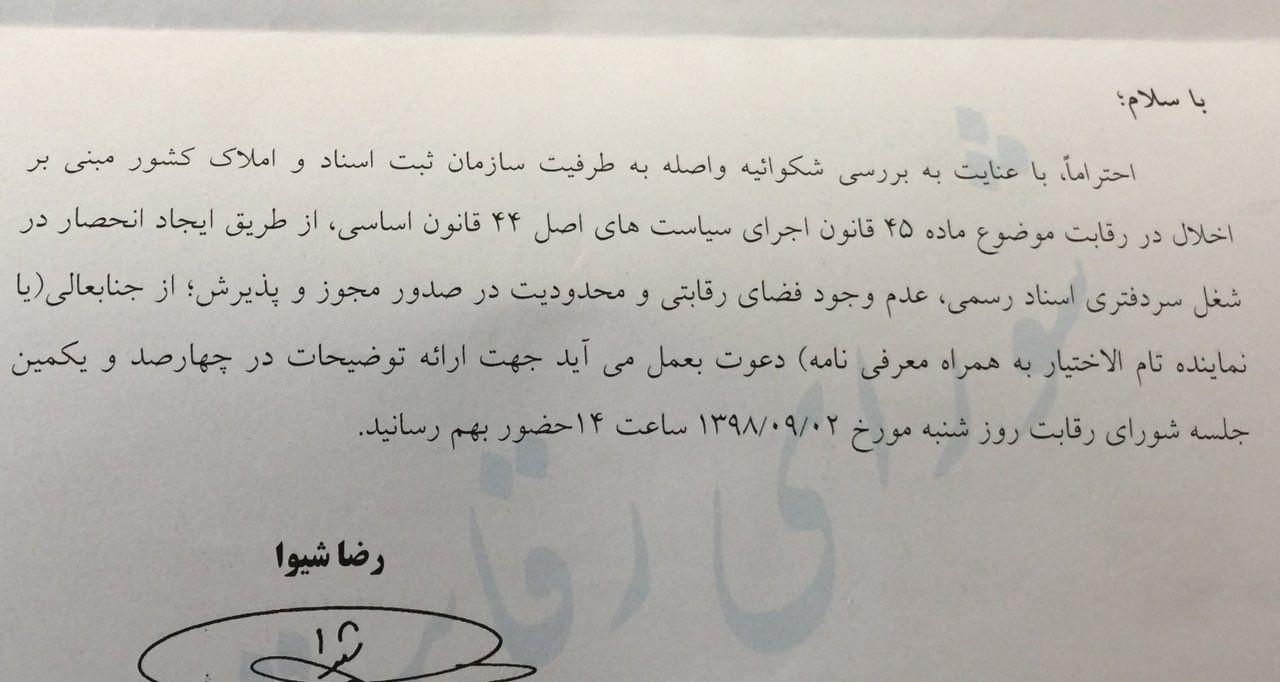 با سلام؛
احتراماً، با عنایت به بررسی شکوائیه واصله به طرفیت سازمان ثبت اسناد و املاک کشور مبنی بر
اخلال در رقابت موضوع ماده ۴۵ قانون اجرای سیاست های اصل ۴۴ قانون اساسی، از طریق ایجاد انحصار در
شغل سردفتری اسناد رسمی، عدم وجود فضای رقابتی و محدودیت در صدور مجوز و پذیرش؛ از جنابعالی(یا
نماینده تام الاختیار به همراه معرفی نامه) دعوت بعمل می آید جهت ارائه توضیحات در چهارصد و یکمین
جلسه شورای رقابت روز شنبه مورخ ۱۳۹۸/۰۹/۰۲ ساعت ۱۴حضور بهم رسانید.
رضا شیوا
شورای رقابت